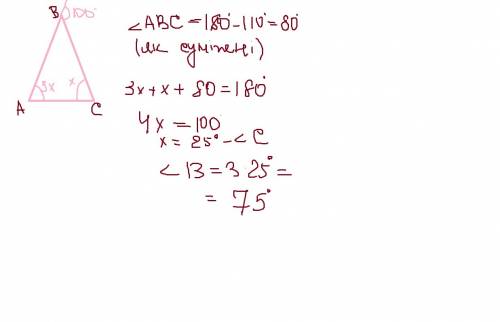 B 100°
3x
x
A
C
∠ABC = 180° - 110° = 80°
(як суміжні)
3x + x + 80 = 180°
4x = 100
x = 25° - ∠C
∠B = 3 25° =
= 75°